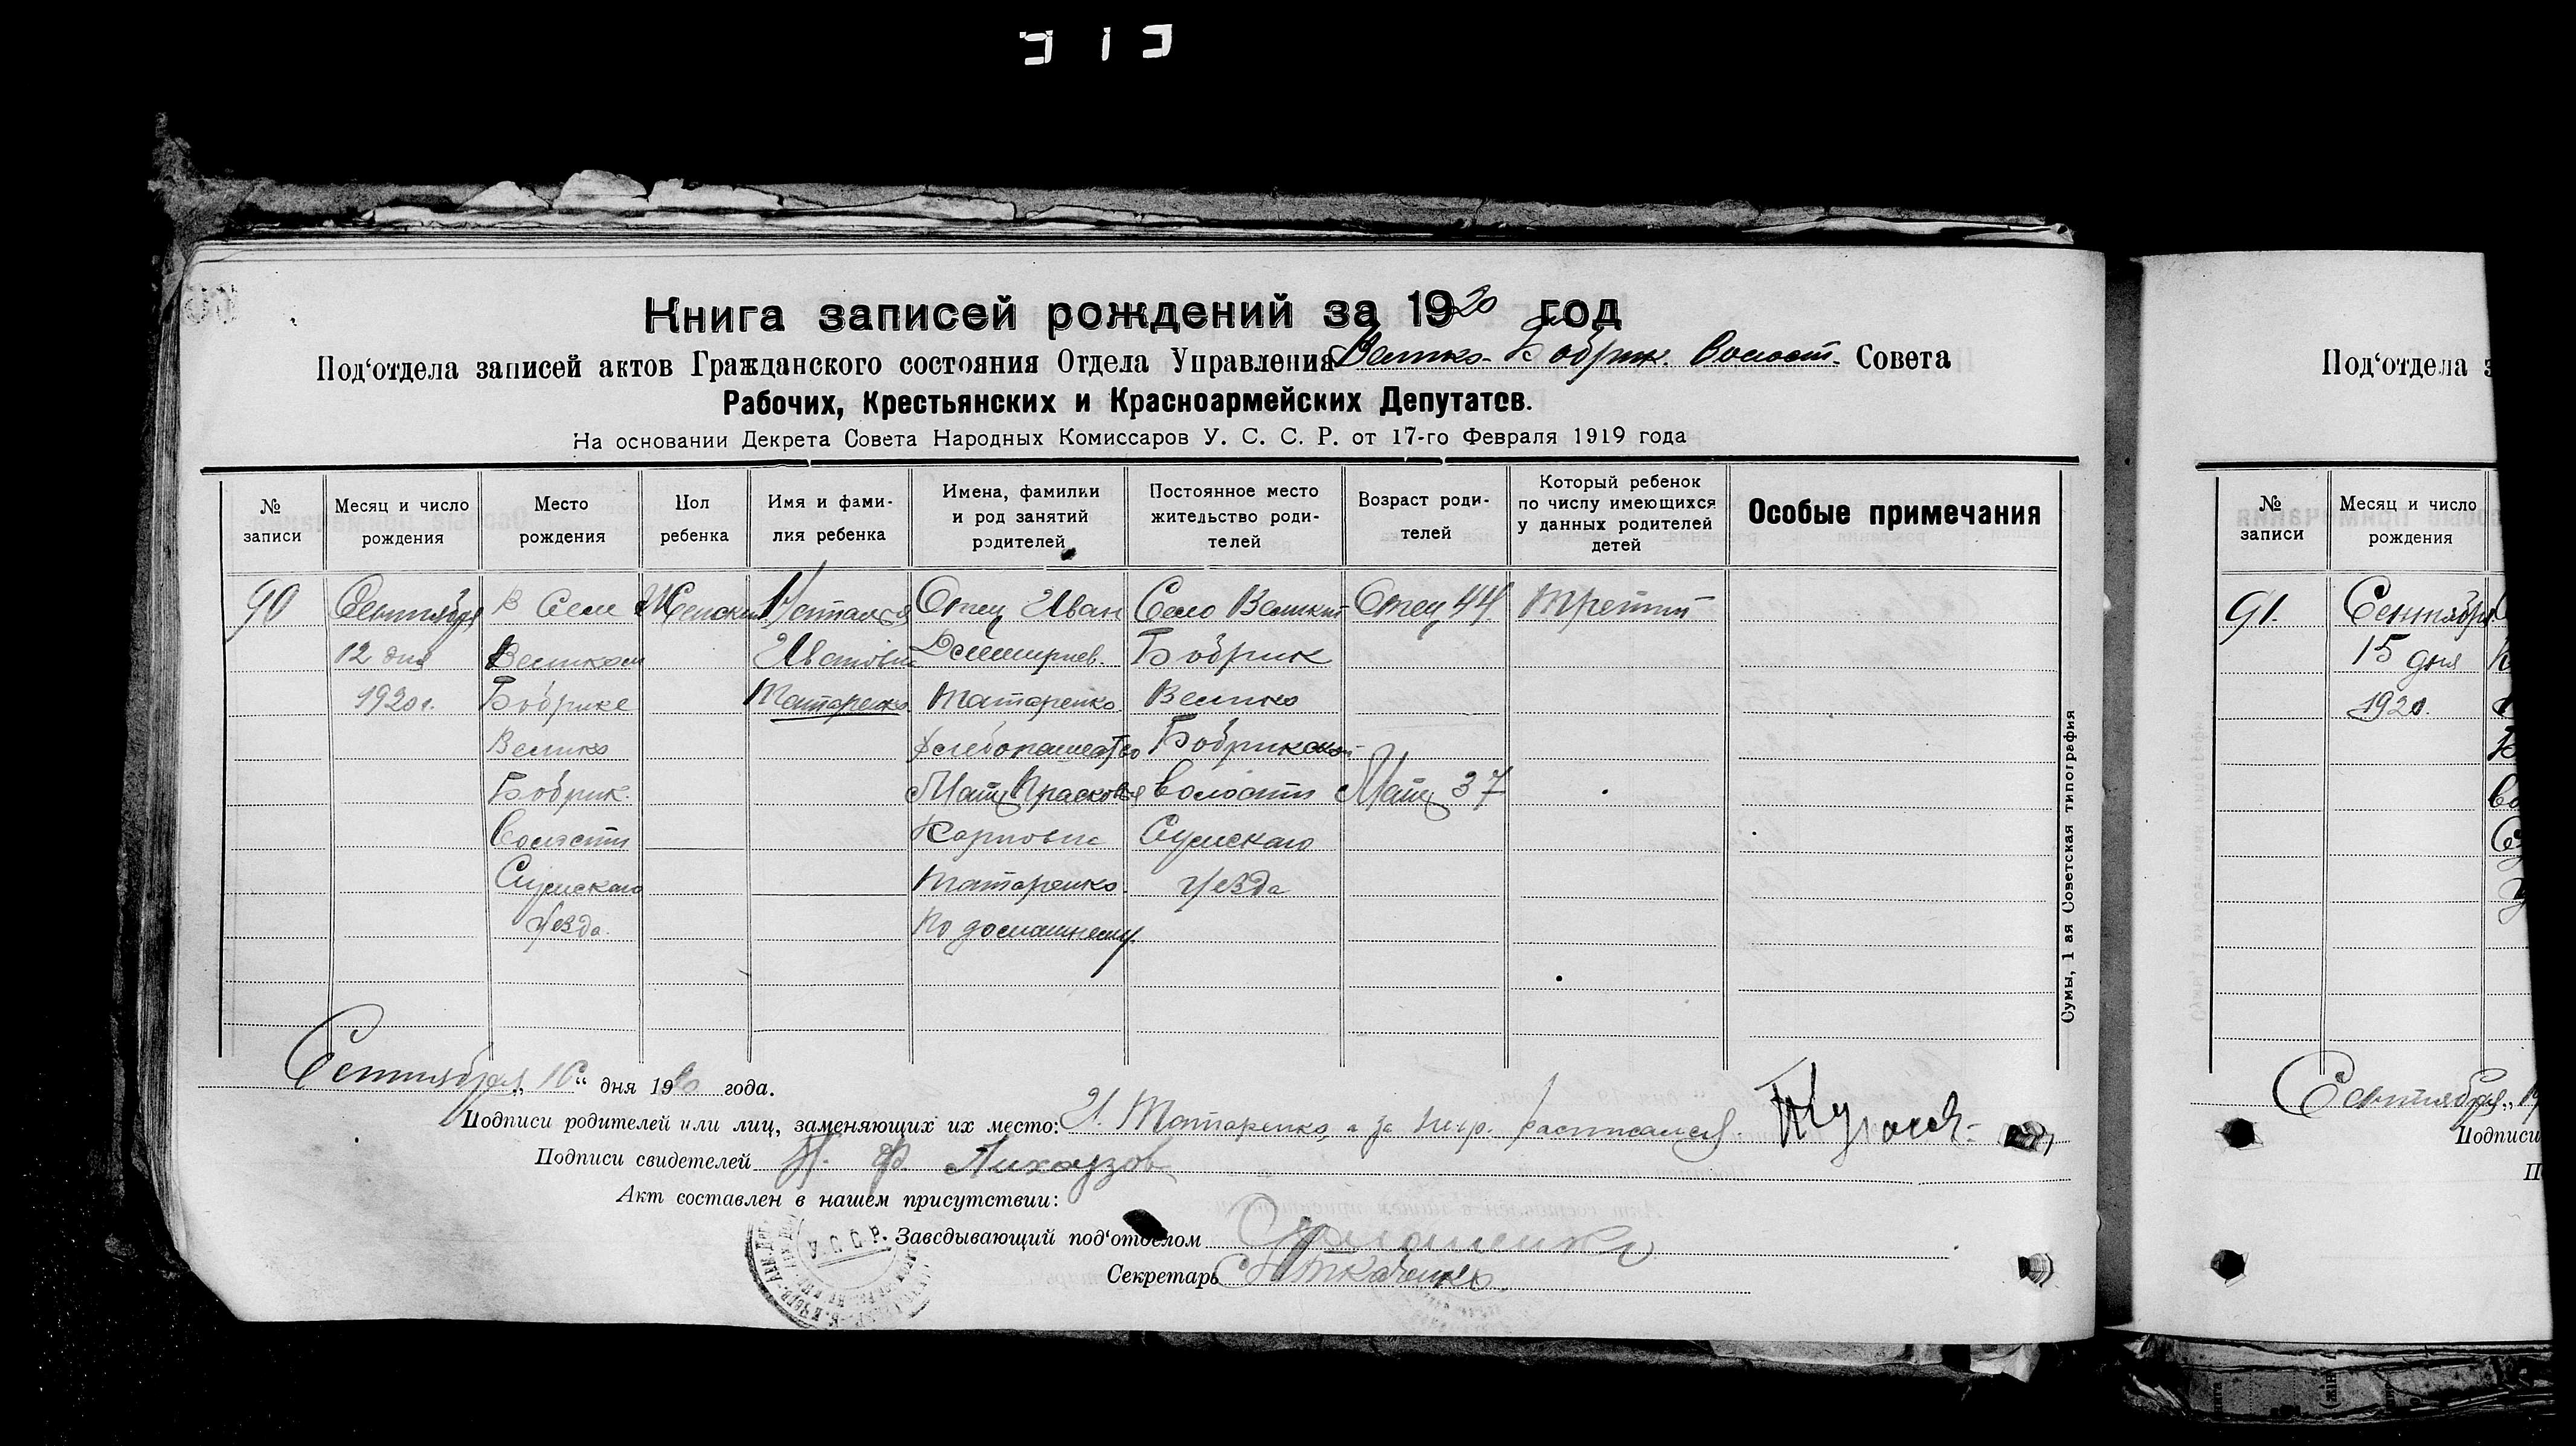 Книга записей рождений за 1920 год
Под‘отдела записей актов Гражданского состояния Отдела Управления Велико-Бобрик. Волост. Совета
Рабочих, Крестьянских и Красноармейских Депутатов.
На основании Декрета Совета Народных Комиссаров У. С. С. Р. от 17-го Февраля 1919 года
№ записи
Месяц и число рождения
Место рождения
Пол ребенка
Имя и фамилия ребенка
Имена, фамилии и род занятий родителей
Постоянное место жительство родителей
Возраст родителей
Который ребенок по числу имеющихся у данных родителей детей
Особые примечания
90 Сентября В Селе Женский Наталия Отец Иван Село Великий Отец 44 Третий
12 дня Великом Ивановна Дмитриев. Бобрик
1920 г. Бобрике Татаренко Татаренко Велико
Велико Хлебопашество Бобрикской
Бобрик. Мать Прасковья волости Мать 37
Волости Карповна Сумского
Сумского Татаренко. уезда
уезда. По домашнему
Сентября „16“ дня 1920 года.
Подписи родителей или лиц, заменяющих их место: И. Татаренко, а за негр. расписался
Подписи свидетелей
Акт составлен в нашем присутствии:
Заведывающий под‘отделом
Секретарь Ткаченко
Сумы, 1 ая Советская типография
Под‘отдела
№ записи
Месяц и число рождения
91. Сентября
15 дня
1920.
Сентября
Подписи